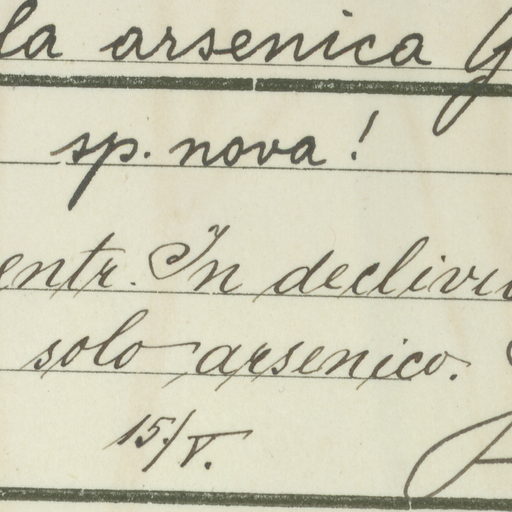 la arsenica G
sp. nova!
entr. In declivi
solo arsenico.
15./V.